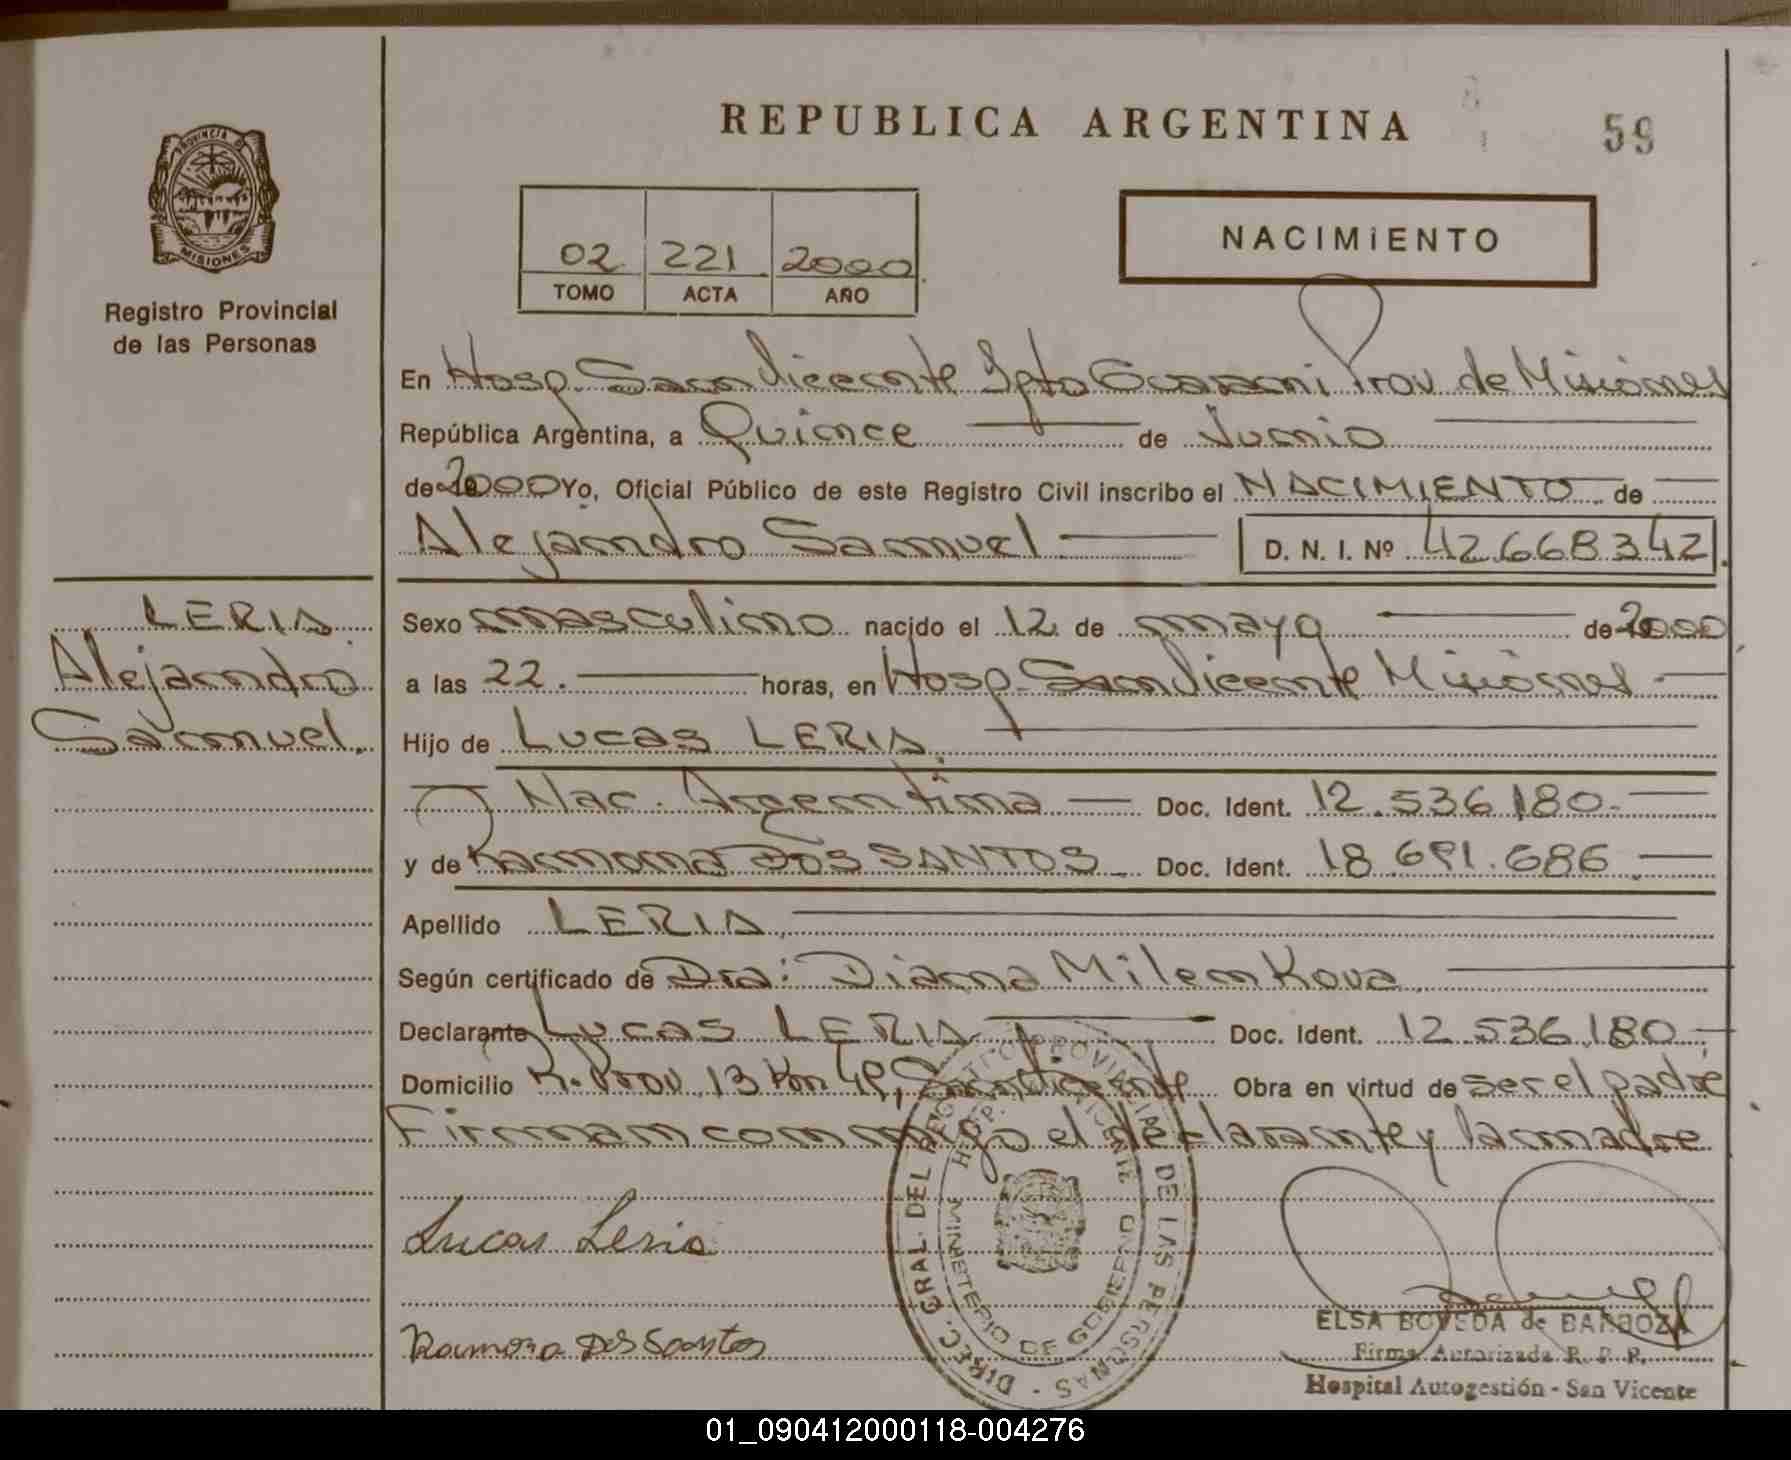 REPUBLICA ARGENTINA
59
PROVINCIA DE
MISIONES
Registro Provincial
de las Personas
02 221 2000
TOMO ACTA AÑO
NACIMIENTO
En Hosp. San Vicente Dpto Guarani Prov. de Misiones
República Argentina, a Quince de Junio
de 2000 Yo, Oficial Público de este Registro Civil inscribo el NACIMIENTO de
Alejandro Samuel D. N. I. Nº 42668342
LERIA
Alejandro
Samuel.
Sexo masculino nacido el 12 de mayo de 2000
a las 22. horas, en Hosp. San Vicente Misiones
Hijo de Lucas LERIA
Nac. Argentina Doc. Ident. 12.536.180.
y de Ramona DOS SANTOS Doc. Ident. 18.691.686
Apellido LERIA
Según certificado de Dra: Diana Milenkova
Declarante Lucas LERIA Doc. Ident. 12.536.180
Domicilio R. Prov. 13 Km San Vicente Obra en virtud de ser el padre
Firman conmigo el declarante y la madre
Lucas Leria
Ramona Dos Santos
DIREC. GRAL. DEL REGISTRO PROVINCIAL DE LAS PERSONAS
HOSP. VICENTE
MINISTERIO DE GOBIERNO
ELSA BOVEDA de BARBOZA
Firma Autorizada R. P. P.
Hospital Autogestión - San Vicente
01_090412000118-004276